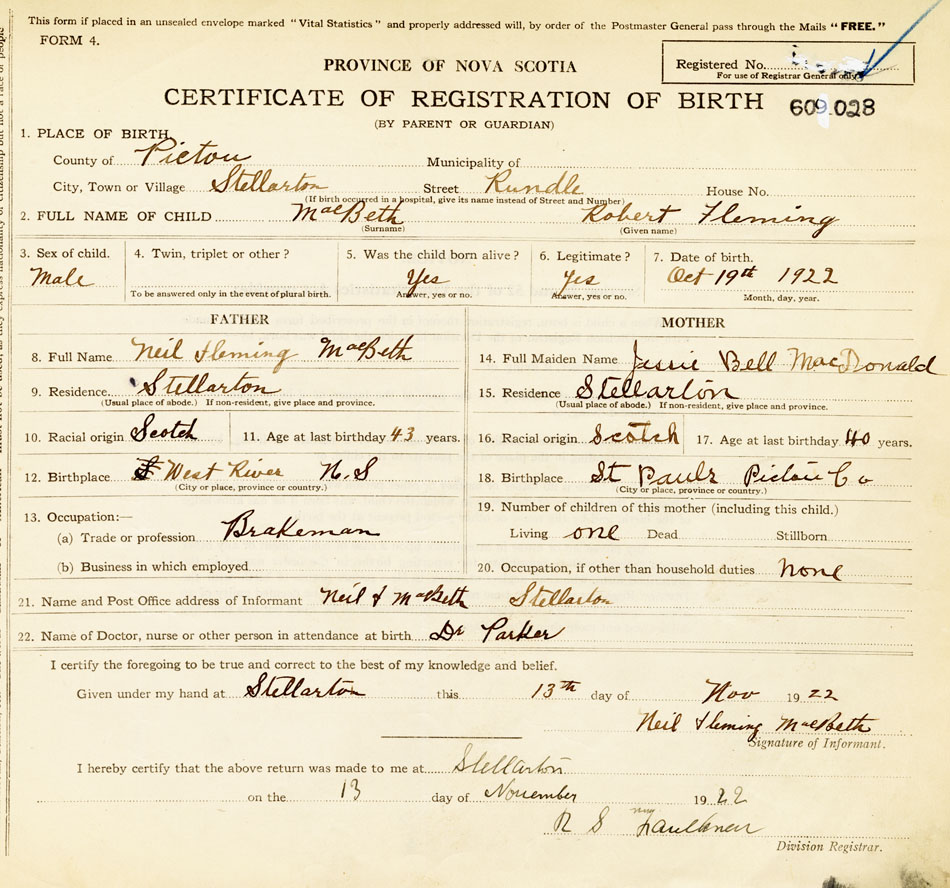 This form if placed in an unsealed envelope marked "Vital Statistics" and properly addressed will, by order of the Postmaster General pass through the Mails "FREE."
FORM 4.
Registered No.
For use of Registrar General only
PROVINCE OF NOVA SCOTIA
CERTIFICATE OF REGISTRATION OF BIRTH 609.028
(BY PARENT OR GUARDIAN)
1. PLACE OF BIRTH
County of Pictou Municipality of
City, Town or Village Stellarton Street Rundle House No.
(If birth occurred in a hospital, give its name instead of Street and Number)
2. FULL NAME OF CHILD MacBeth Robert Fleming
(Surname) (Given name)
3. Sex of child. 4. Twin, triplet or other? 5. Was the child born alive? 6. Legitimate? 7. Date of birth.
Male Yes Yes Oct 19th 1922
To be answered only in the event of plural birth. Answer, yes or no. Answer, yes or no. Month, day, year.
FATHER
8. Full Name Neil Fleming MacBeth
9. Residence Stellarton
(Usual place of abode.) If non-resident, give place and province.
10. Racial origin Scotch 11. Age at last birthday 43 years.
12. Birthplace West River N.S
(City or place, province or country.)
13. Occupation:—
(a) Trade or profession Brakeman
(b) Business in which employed
MOTHER
14. Full Maiden Name Jessie Bell MacDonald
15. Residence Stellarton
(Usual place of abode.) If non-resident, give place and province.
16. Racial origin Scotch 17. Age at last birthday 40 years.
18. Birthplace St Pauls Pictou Co
(City or place, province or country.)
19. Number of children of this mother (including this child.)
Living one Dead Stillborn
20. Occupation, if other than household duties None
21. Name and Post Office address of Informant Neil F MacBeth Stellarton
22. Name of Doctor, nurse or other person in attendance at birth Dr Parker
I certify the foregoing to be true and correct to the best of my knowledge and belief.
Given under my hand at Stellarton this 13th day of Nov 1922
Neil Fleming MacBeth
Signature of Informant.
I hereby certify that the above return was made to me at Stellarton
on the 13 day of November 1922
R S Faulkner
Division Registrar.